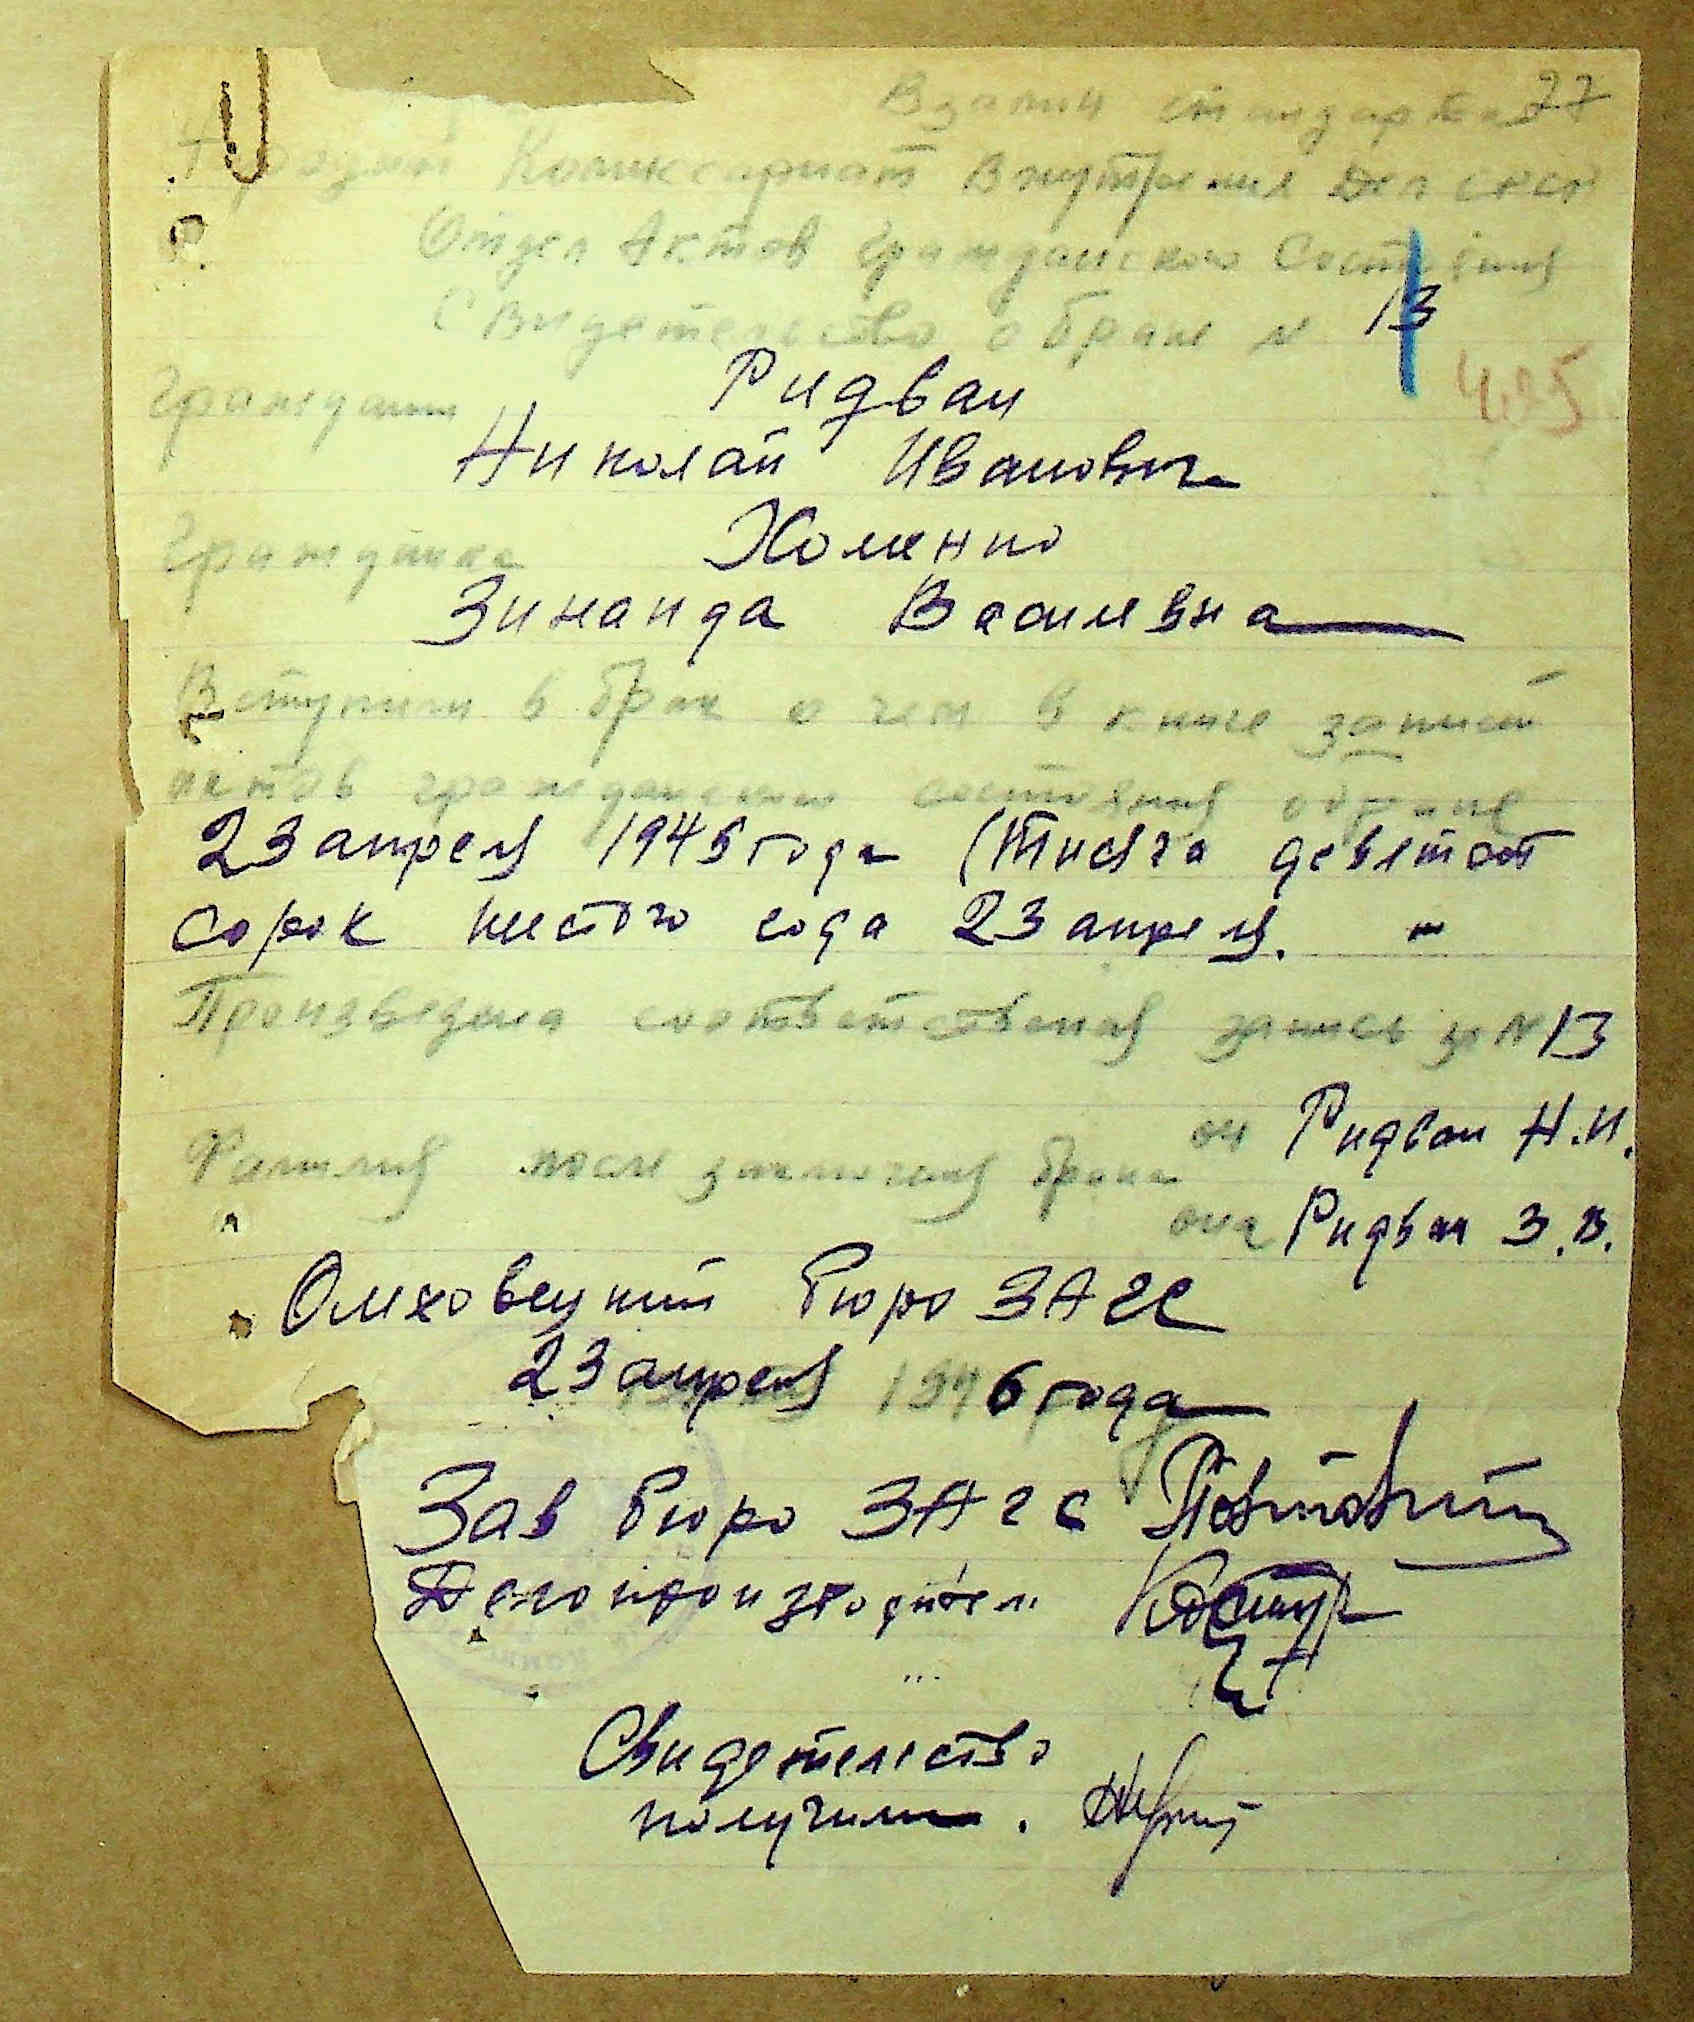 Взамин стандарта 77
Народний Комиссариат Внутрения Дел СССР
Отдел Актов Гражданского Состояния
Свидетельство о браке № 13
425
Гражданин Ридван
Николай Иванович
Гражданка Хоменко
Зинаида Василевна
Вступили в брак о чем в книге записи
актов гражданского состояния о браке
23 апреля 1946 года (Тисяча девятсот
сорок шестого года 23 апреля.
Произведена соответственая запись за № 13
он Ридван Н.И.
Фамилия после заключения брака
она Ридван З.В.
Ольховецкий Бюро ЗАГС
23 апреля 1946 года
Зав Бюро ЗАГС
Делопроизводитель
Свидетельство
получили.